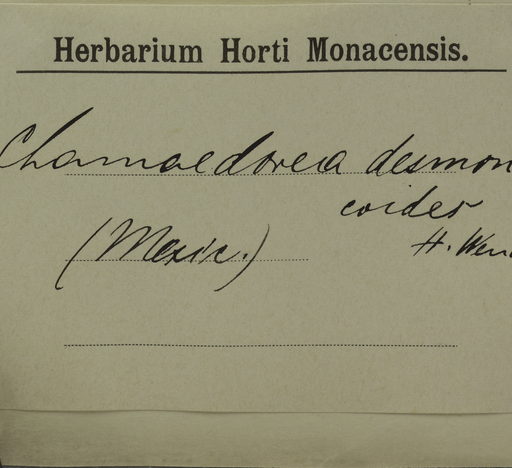 Herbarium Horti Monacensis.
Chamaedorea desmon
coides
(Mexic.)
H. Wen